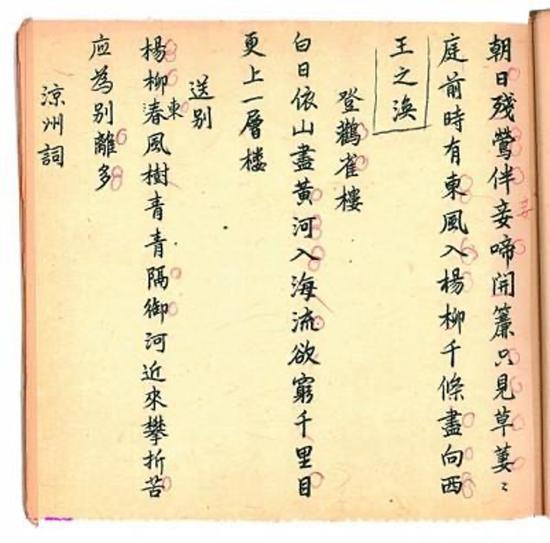 朝日殘鶯伴妾啼開簾只見草萋〻
庭前時有東風入楊柳千條盡向西
王之渙
登鸛雀樓
白日依山盡黃河入海流欲窮千里目
更上一層楼
送别
楊柳東春風樹青青隔御河近來攀折苦
应為别離多
涼州詞